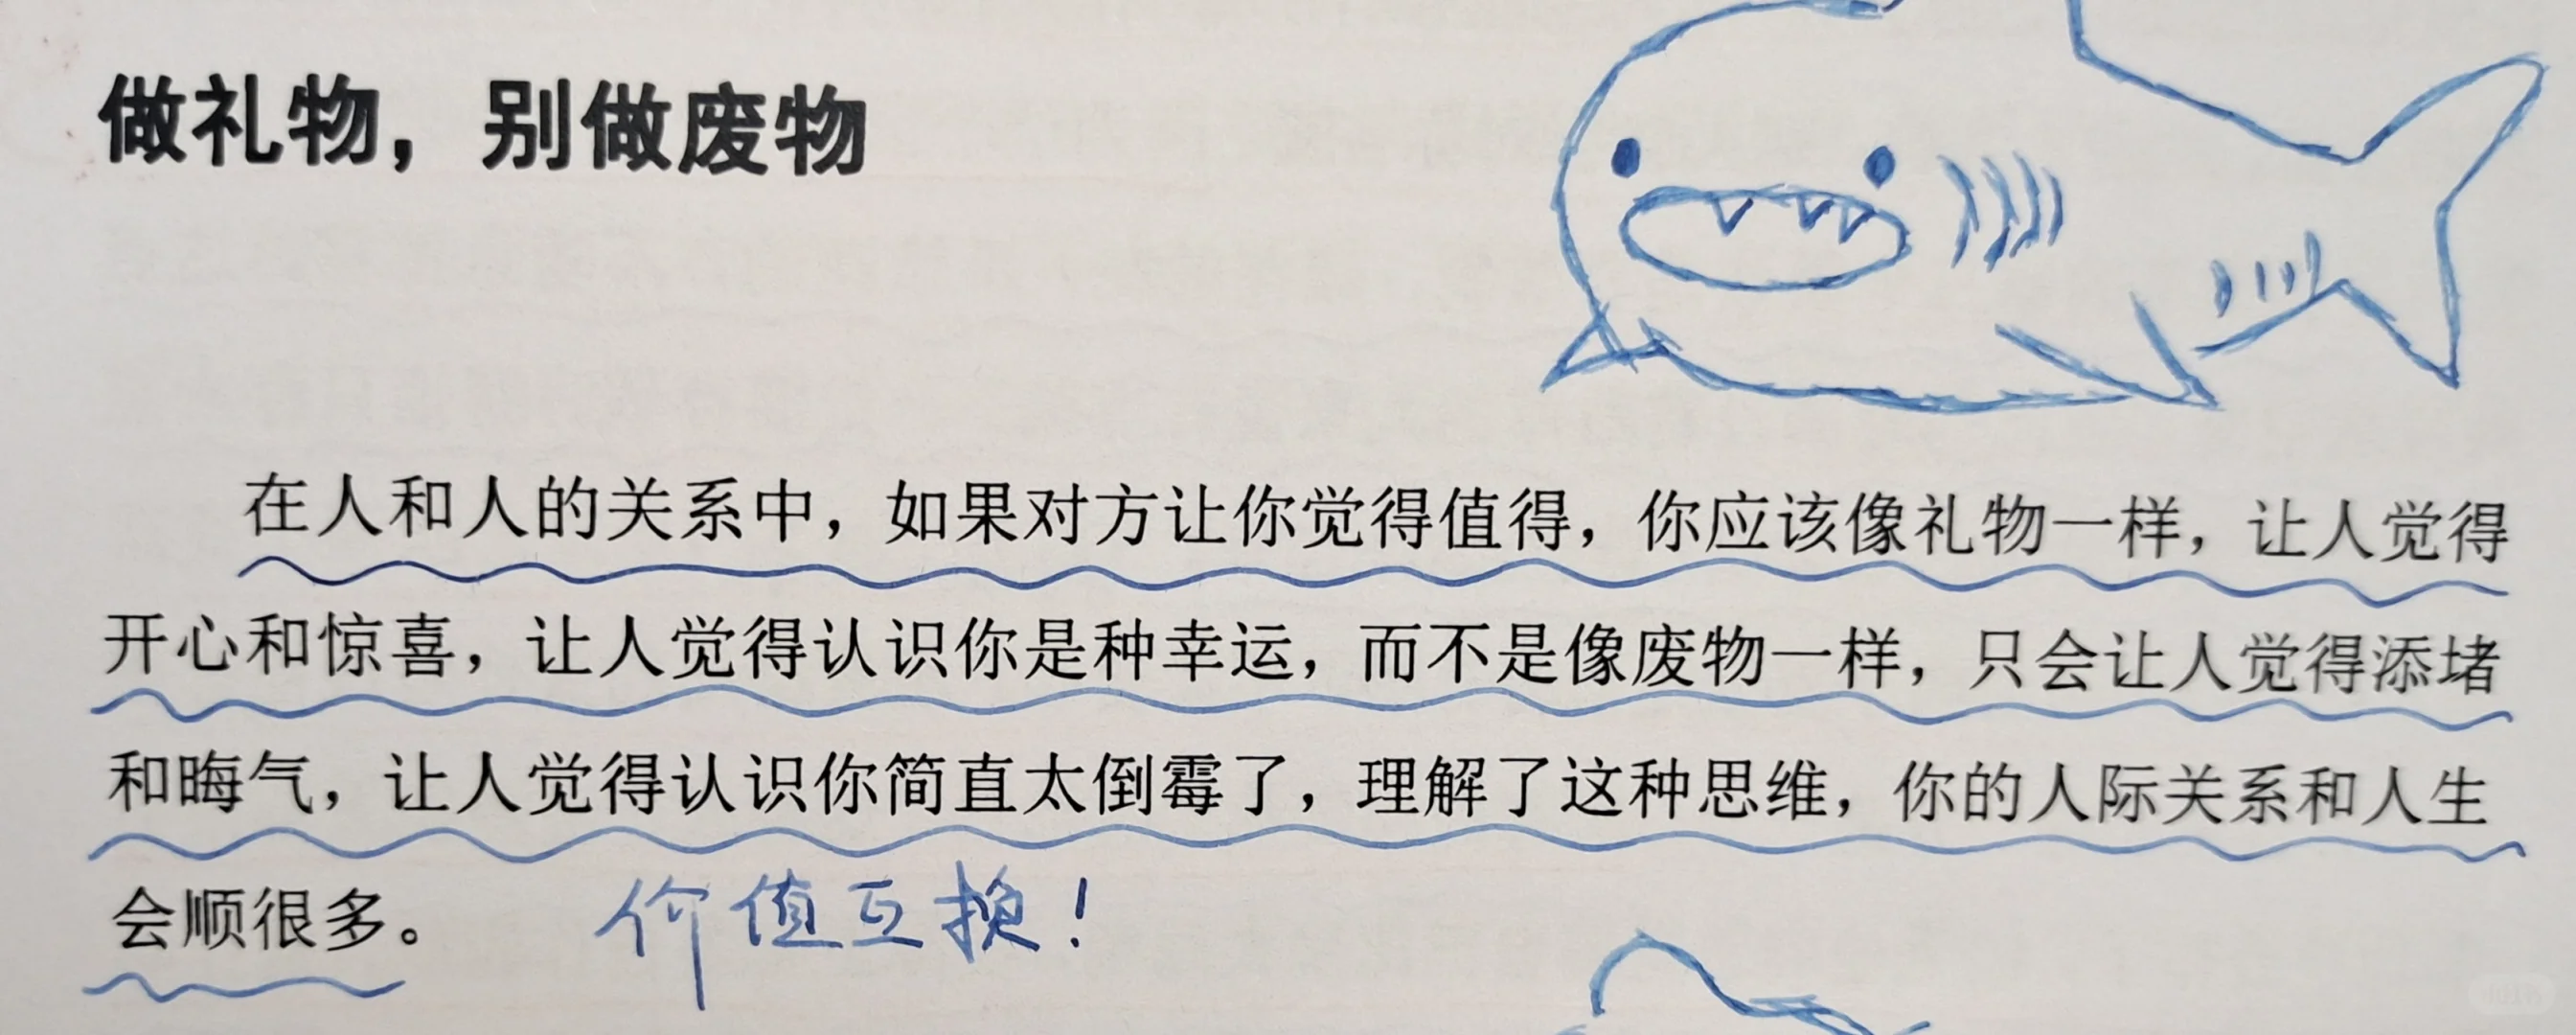 做礼物，别做废物
在人和人的关系中，如果对方让你觉得值得，你应该像礼物一样，让人觉得
开心和惊喜，让人觉得认识你是种幸运，而不是像废物一样，只会让人觉得添堵
和晦气，让人觉得认识你简直太倒霉了，理解了这种思维，你的人际关系和人生
会顺很多。 价值互换！